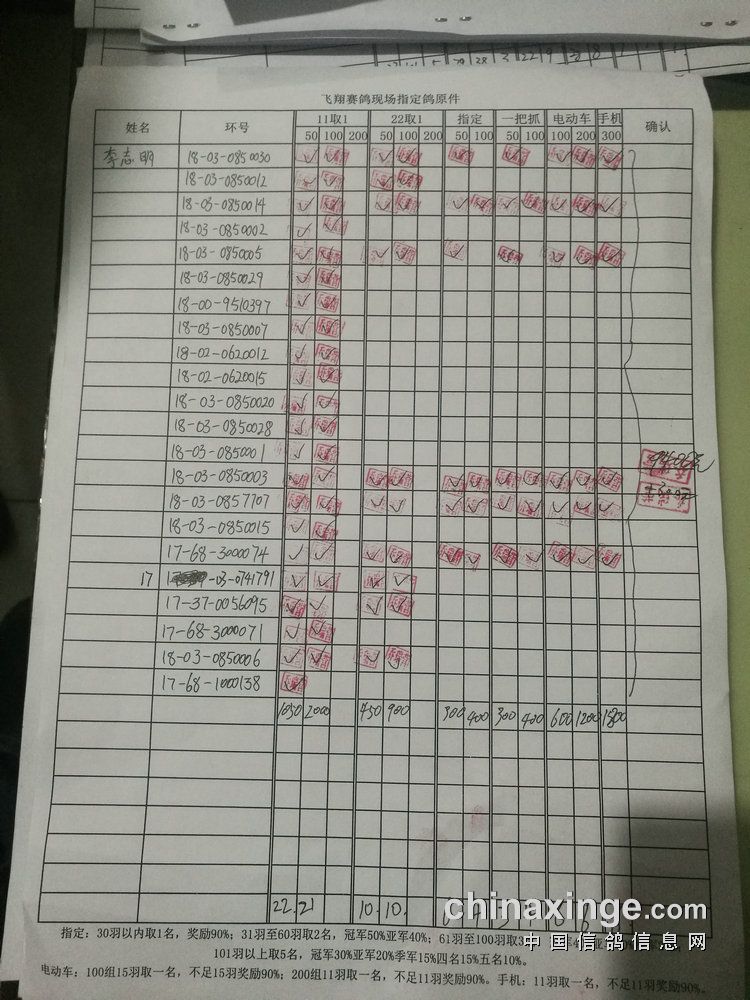 飞翔赛鸽现场指定鸽原件
姓名 环号 11取1 22取1 指定 一把抓 电动车 手机 确认
50 100 200 50 100 200 50 100 50 100 100 200 300
李志明 18-03-0850030
18-03-0850012
18-03-0850014
18-03-0850002
18-03-0850005
18-03-0850029
18-00-9510397
18-03-0850007
18-02-0620012
18-02-0620015
18-03-0850020
18-03-0850028
18-03-0850001
18-03-0850003
18-03-0857707
18-03-0850015
17-68-3000074
17 -03-0741791
17-37-0056095
17-68-3000071
18-03-0850006
17-68-1000138
1050 2000 450 900 300 400 300 400 600 1200 1800
22. 21 10. 10.
chinaxinge.com
中国信鸽信息网
指定：30羽以内取1名，奖励90%；31羽至60羽取2名，冠军50%亚军40%；61羽至100羽取3
101羽以上取5名，冠军30%亚军20%季军15%四名15%五名10%。
电动车：100组15羽取一名，不足15羽奖励90%；200组11羽取一名，不足11羽奖励90%。手机：11羽取一名，不足11羽奖励90%。